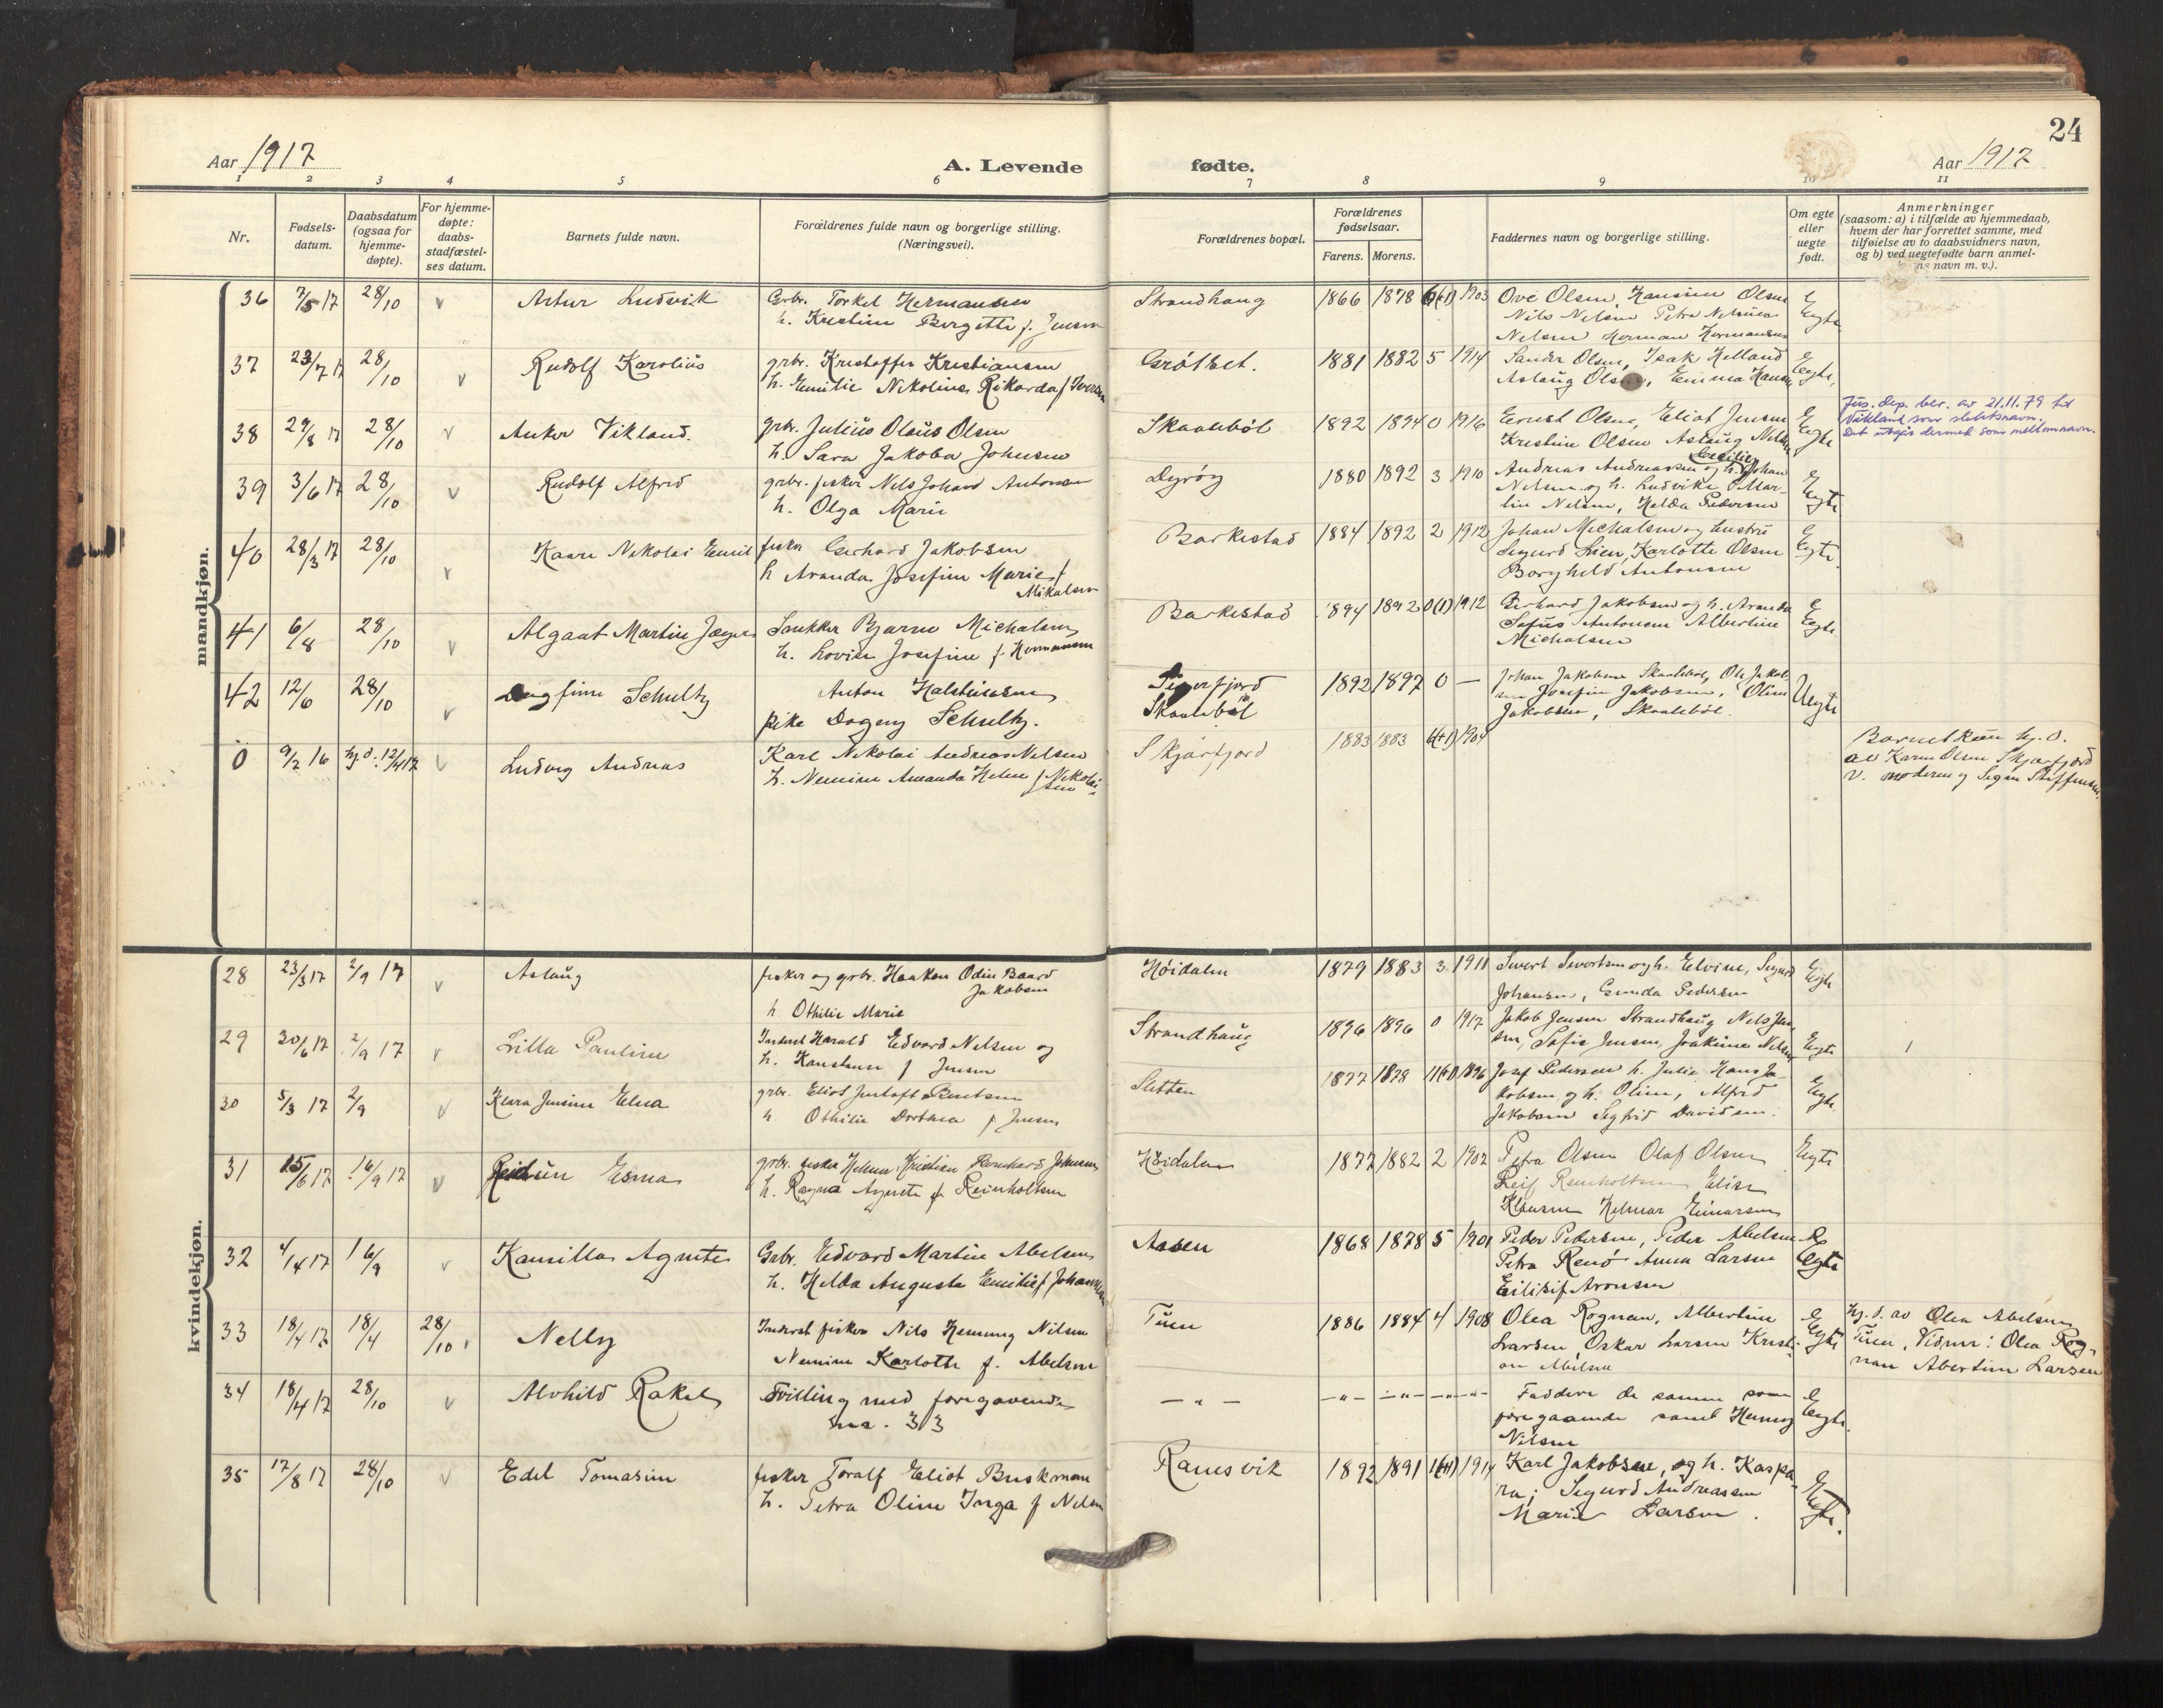 24
Aar 1917 A. Levende fødte. Aar 1917
1 2 3 4 5 6 7 8 9 10 11
Nr.
Fødsels-
datum.
Daabsdatum
(ogsaa for
hjemme-
døpte).
For hjemme-
døpte:
daabs-
stadfæstel-
ses datum.
Barnets fulde navn.
Forældrenes fulde navn og borgerlige stilling.
(Næringsvei).
Forældrenes bopæl.
Forældrenes
fødselsaar.
Farens. Morens.
Faddernes navn og borgerlige stilling.
Om egte
eller
uegte
født.
Anmerkninger
(saasom: a) i tilfælde av hjemmedaab,
hvem der har forrettet samme, med
tilføielse av to daabsvidners navn,
og b) ved uegtefødte barn anmel-
ns navn m. v.).
mandkjøn.
36 7/5 17 28/10 v Artur Ludvik Grbr. Torkel Hermansen Strandhaug 1866 1878 6(+1) 1903 Ove Olsen, Hansine Olsen Egte
h. Kristine Bergitte f. Jensen Nils Nelsen Petra Nelsine
Nelsen Herman Hermansen
37 23/7 17 28/10 v Rudolf Karolius grbr. Kristoffer Kristiansen 1881 1882 5 1914 Sander Olsen, Isak Helland Egte
h. Emilie Nikoline Rikarda f Iversen Aslaug Olsen, Emma Hansen
38 29/8 17 28/10 v Anker Vikland. grbr. Julius Olaus Olsen Skaalebøl 1892 1894 0 1916 Ernst Olsen, Eliot Jensen Egte
h. Sara Jakoba Johnsen Kristine Olsen Aslaug Nelsen
Jus. dep. bev. av 21.11.79 til
Vikland som slektsnavn.
Det utgår dermed som mellomnavn.
39 3/6 17 28/10 v Rudolf Alfred grbr. fisker Nels Johard Antonsen Dyrøy 1880 1892 3 1910 Andreas Andreassen og h. Cecilie, Johan Egte
h. Olga Marie Nelsen og h. Ludvike Mar-
lin Nelsen, Helda Pedersen
40 28/3 17 28/10 v Kaare Nikolai Emil fisker Gerhard Jakobsen Barkestad 1884 1892 2 1912 Johan Michalsen og hustru Egte
h Aranda Josefine Marie f Sigurd Lien, Karlotte Olsen
Mikalsen Borghild Antonsen
41 6/8 28/10 v Algaat Martin Jæger Snekker Bjarne Michalsen Barkestad 1894 1892 0(1) 1912 Gerhard Jakobsen og h. Aranda Egte
h. Lovise Josefine f. Hermansen Sofus Antonsen Albertine
Michalsen
42 12/6 28/10 v Dagfinn Schultz Anton Halstensen Sigerfjord 1892 1897 0 — Johan Jakobsen Skaalebøl, Ole Jakob- Uegte
pike Dagny Schultz. Skaalebøl sen Josefine Jakobsen, Oline
Jakobsen, Skaalebøl.
0 9/2 16 hj.d. 12/4 17 v Ludvig Andreas Karl Nikolai Andreas Nelsen Skjørfjord 1883 1883 6(+1) 1904
h. Nennine Amanda Helene f Nikolai-
sen
Barnet kun hj. d.
av Karen Olsen Skjørfjord
v. moderen og Signe Steffensen.
kvindekjøn.
28 23/3 17 2/9 17 v Aslaug fisker og grbr. Haakon Odin Baard Høidalen 1879 1883 3 1911 Sivert Sivertsen og h. Elvine, Sigurd Egte
Jakobsen Johansen, Gunda Pedersen
h. Othilie Marie
29 30/6 17 2/9 17 v Lilla Pauline Inderst Harald Edvard Nelsen og Strandhaug 1896 1896 0 1917 Jakob Jensen Strandhaug Nels Jen- Egte
h. Konstanse f Jensen sen, Sofie Jensen, Joakime Nelsen
30 5/3 17 2/9 v Klara Jensine Elna grbr. Eliot Justoft Bentsen Sletten 1877 1878 1896 Josef Pedersen h. Julie Hans Ja- Egte
h. Othilie Dorthea f Jensen kobsen og h. Oline, Alfred
Jakobsen Sigfrid Davidsen.
31 15/6 17 16/9 17 v Reidun Esma grbr. fisker Helmer Kristian Leonhard Johnsen Høidalen 1877 1882 2 1907 Petra Olsen Olaf Olsen Egte
h. Ragna Agnete f. Reinholtsen Leif Reinholtsen Elise
Klausen Helmar Einarsen
32 4/4 17 16/9 v Kamilla Agnete Grbr. Edvard Martin Abelsen Aasen 1868 1878 5 1901 Peder Pedersen, Peder Abelsen Egte
h. Helda Augusta Emilie f Johansen Petra Renø Anna Larsen
Eilisif Aronsen
33 18/4 17 18/4 28/10 Nelly Inderst fisker Nils Henning Nilsen Tuen 1886 1884 4 1908 Olea Rognan, Albertine Egte
Nennine Karlotte f. Abelsen Larsen, Oskar Larsen Kristi-
an Abelsen
Hj. d. av Olea Abelsen
Tuen, Vidner: Olea Rog-
nan Albertine Larsen
34 18/4 17 28/10 v Alvhild Rakel Tvilling med foregaaende — " — — " — — " — — " — Faddere de samme som Egte.
no. 33 foregaaende samt Henning
Nilsen
35 17/8 17 28/10 v Edel Tomasine fisker Toralf Eliot Buskman Ramsvik 1892 1891 1(+1) 1914 Karl Jakobsen, og h. Kaspa- Egte.
h. Petra Oline Inga f Nelsen ra; Sigurd Andreassen
Marie Larsen.